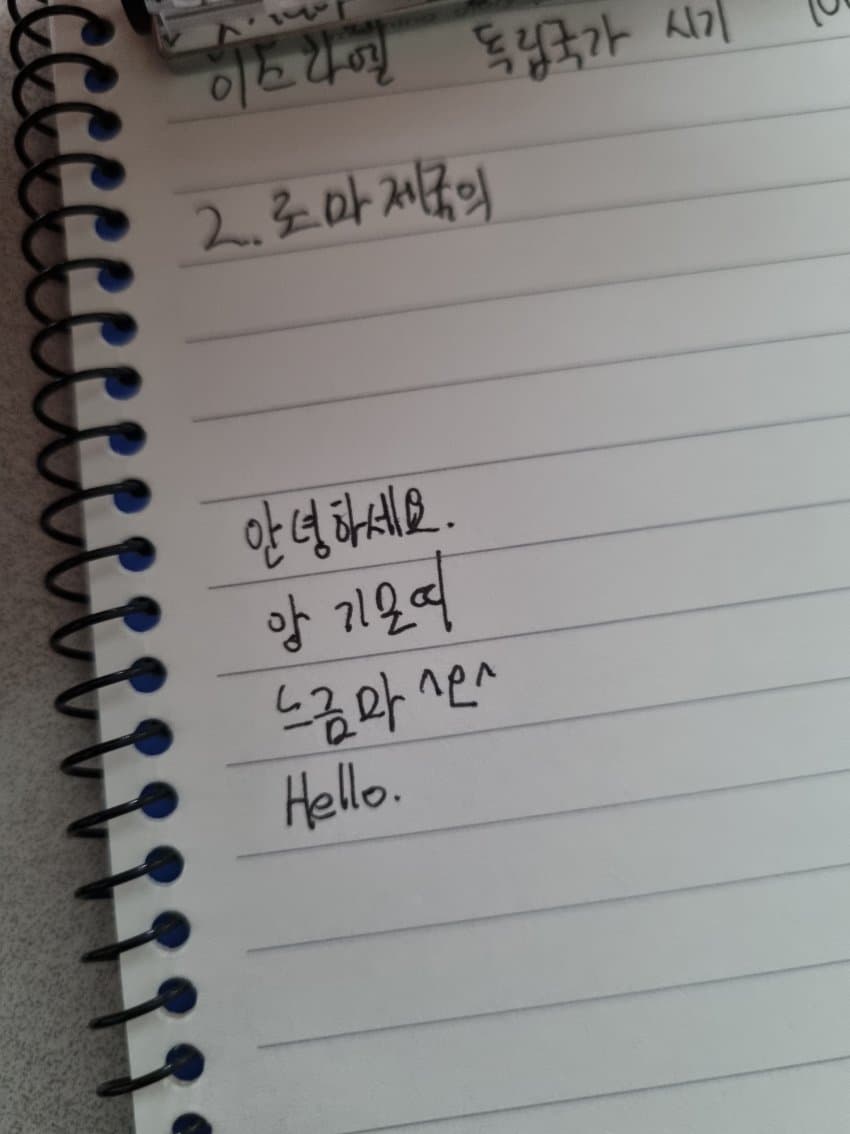 이스라엘 독립국가 시기
2. 로마 제국의
안녕하세요.
앙 기모여
느금마 ^오^
Hello.